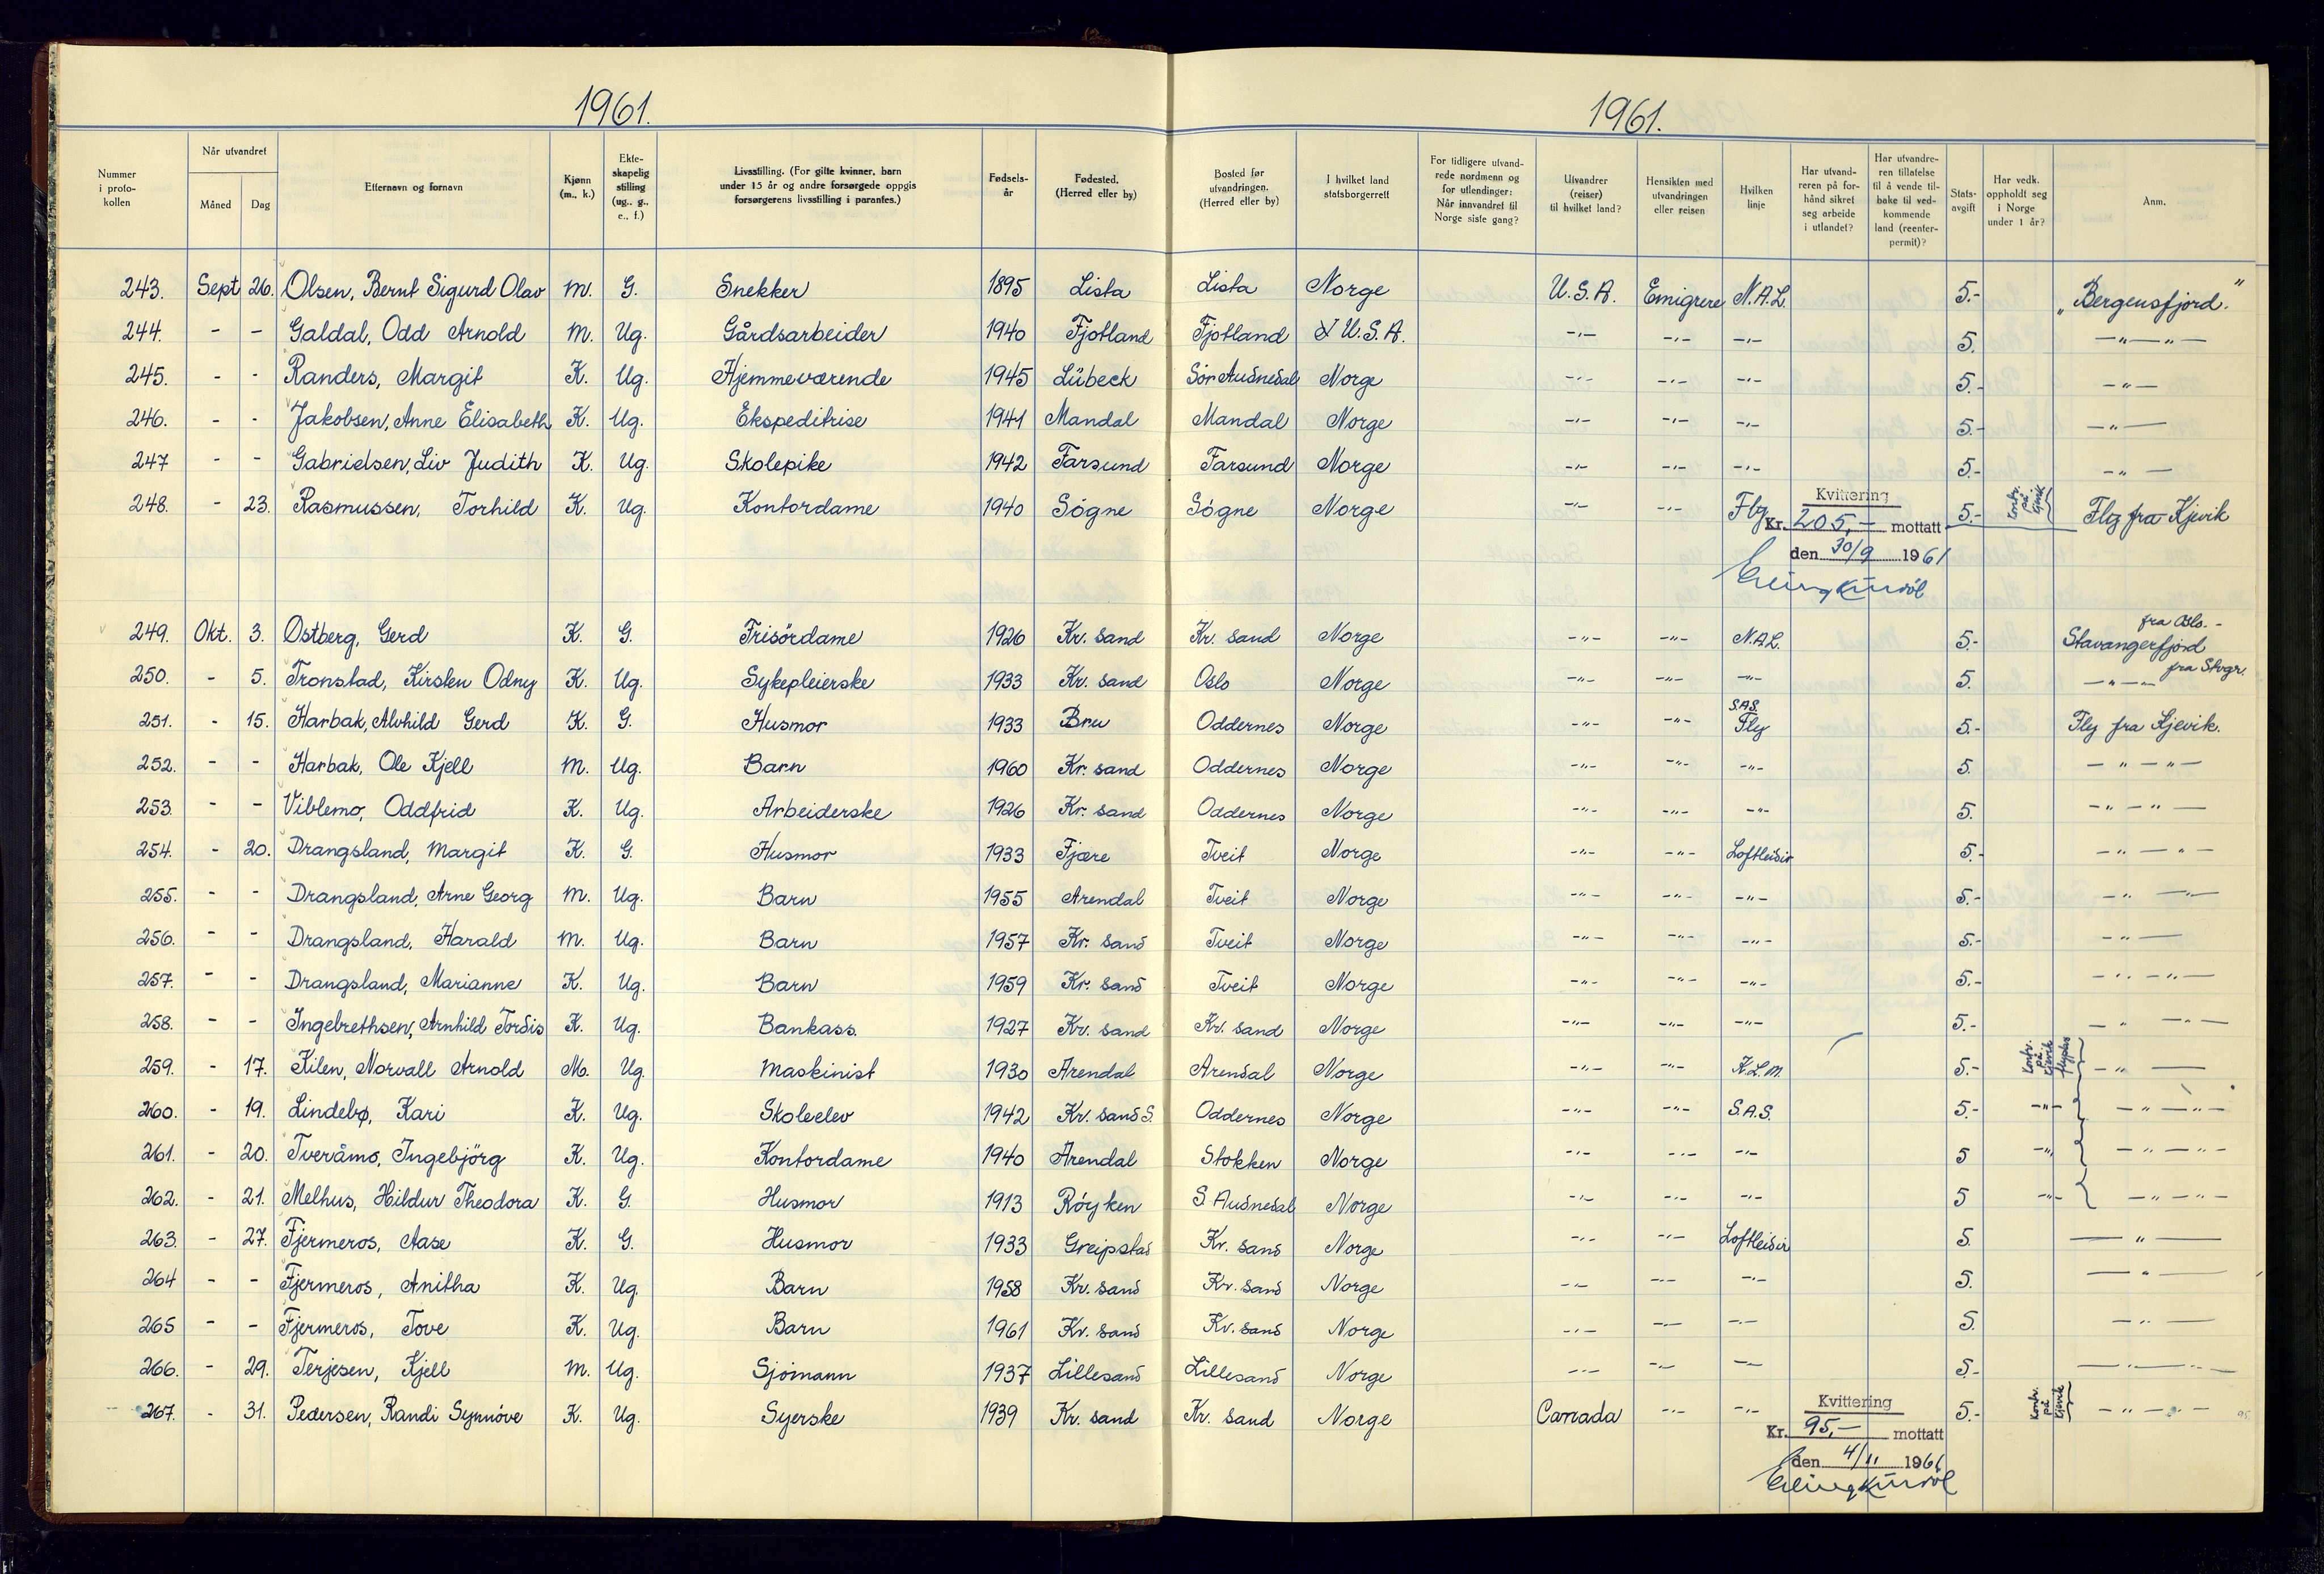 1961. 1961.
Nummer i protokollen | Når utvandret Måned Dag | Etternavn og fornavn | Kjønn (m., k.) | Ekteskapelig stilling (ug., g., e., f.) | Livsstilling. (For gifte kvinner, barn under 15 år og andre forsørgede oppgis forsørgerens livsstilling i parantes.) | Fødselsår | Fødested. (Herred eller by) | Bosted før utvandringen. (Herred eller by) | I hvilket land statsborgerrett | For tidligere utvandrede nordmenn og for utlendinger: Når innvandret til Norge siste gang? | Utvandrer (reiser) til hvilket land? | Hensikten med utvandringen eller reisen | Hvilken linje | Har utvandreren på forhånd sikret seg arbeide i utlandet? | Har utvandreren tillatelse til å vende tilbake til vedkommende land (reenterpermit)? | Statsavgift | Har vedk. oppholdt seg i Norge under 1 år? | Anm.
243. Sept 26. Olsen, Bernt Sigurd Olav M. G. Snekker 1895 Lista Lista Norge U.S.A. Emigrere N.A.L. 5.- „Bergensfjord."
244. - - Galdal, Odd Arnold M. Ug. Gårdsarbeider 1940 Fjotland Fjotland U.S.A. -"- -"- -"- 5. -"-"-
245. - - Randers, Margit K. Ug. Hjemmeværende 1945 Lübeck Sör Audnedal Norge -"- -"- -"- 5.- -"-
246. - - Jakobsen, Anne Elisabeth K. Ug. Ekspeditrise 1941 Mandal Mandal Norge -"- -"- -"- 5.- -"-
247 - - Gabrielsen, Liv Judith K. Ug. Skolepike 1942 Farsund Farsund Norge -"- -"- -"- 5.- -"-
248. - 23. Rasmussen, Torhild K. Ug. Kontordame 1940 Sögne Sögne Norge -"- -"- Fly 5.- Kontr. på Kjevik Fly fra Kjevik
Kvittering
Kr. 205,- mottatt
den 30/9 1961
249. Okt. 3. Östberg, Gerd K. G. Frisördame 1926 Kr. sand Kr. sand Norge -"- -"- N.A.L. 5.- Stavangerfjord fra Oslo.-
250. - 5. Tronstad, Kirsten Odny K. Ug. Sykepleierske 1933 Kr. sand Oslo Norge -"- -"- -"- 5. -"- fra Stvgr.
251. - 15. Harbak, Alvhild Gerd K. G. Husmor 1933 Bru Oddernes Norge -"- -"- S.A.S. Fly 5.- Fly fra Kjevik.
252. - - Harbak, Ole Kjell M. Ug. Barn 1960 Kr. sand Oddernes Norge -"- -"- -"- 5. -"-"-
253. - - Viblemo, Oddfrid K. Ug. Arbeiderske 1926 Kr. sand Oddernes Norge -"- -"- -"- 5. -"-"-
254. - 20. Drangsland, Margit K. G. Husmor 1933 Fjære Tveit Norge -"- -"- Loftleidir 5.- -"-"-
255. - - Drangsland, Arne Georg M. Ug. Barn 1955 Arendal Tveit Norge -"- -"- -"- 5.- -"-"-
256. - - Drangsland, Harald M. Ug. Barn 1957 Kr. sand Tveit Norge -"- -"- -"- 5.- -"-
257. - - Drangsland, Marianne K. Ug. Barn 1959 Kr. sand Tveit Norge -"- -"- -"- 5.- -"-"-
258. - - Ingebrethsen, Arnhild Tordis K. Ug. Bankass. 1927 Kr. sand Kr. sand Norge -"- -"- -"- 5.- -"-"-
259. - 17. Kilen, Norvall Arnold M. Ug. Maskinist 1930 Arendal Arendal Norge -"- -"- K.L.M. 5.- Kontr. på Kjevik flyplss -"-
260. - 19. Lindebø, Kari K. Ug. Skoleelev 1942 Kr. sand S. Oddernes Norge -"- -"- S.A.S. 5.- -"- -"-"-
261. - 20. Tveråmo, Ingebjörg K. Ug. Kontordame 1940 Arendal Stokken Norge -"- -"- -"- 5 -"- -"-"-
262. - 21. Melhus, Hildur Theodora K. G. Husmor 1913 Röyken S. Audnedal Norge -"- -"- -"- 5 -"- -"-"-
263. - 27. Fjermeros, Aase K. G. Husmor 1933 Greipstad Kr. sand Norge -"- -"- Loftleidir 5. -"-
264 - - Fjermeros, Anitha K. Ug. Barn 1958 Kr. sand Kr. sand Norge -"- -"- -"- 5. -"-
265 - - Fjermeros, Tove K. Ug. Barn 1961 Kr. sand Kr. sand Norge -"- -"- -"- 5. -"-
266. - 29. Terjesen, Kjell M. Ug. Sjömann 1937 Lillesand Lillesand Norge -"- -"- -"- 5.- -"-"-
267. - 31. Pedersen, Randi Synnöve K. Ug. Syerske 1939 Kr. sand Kr. sand Norge Canada -"- -"- 5.- Kontr. på Kjevik -"-"- 95
Kvittering
Kr. 95,- mottatt
den 4/11 1961